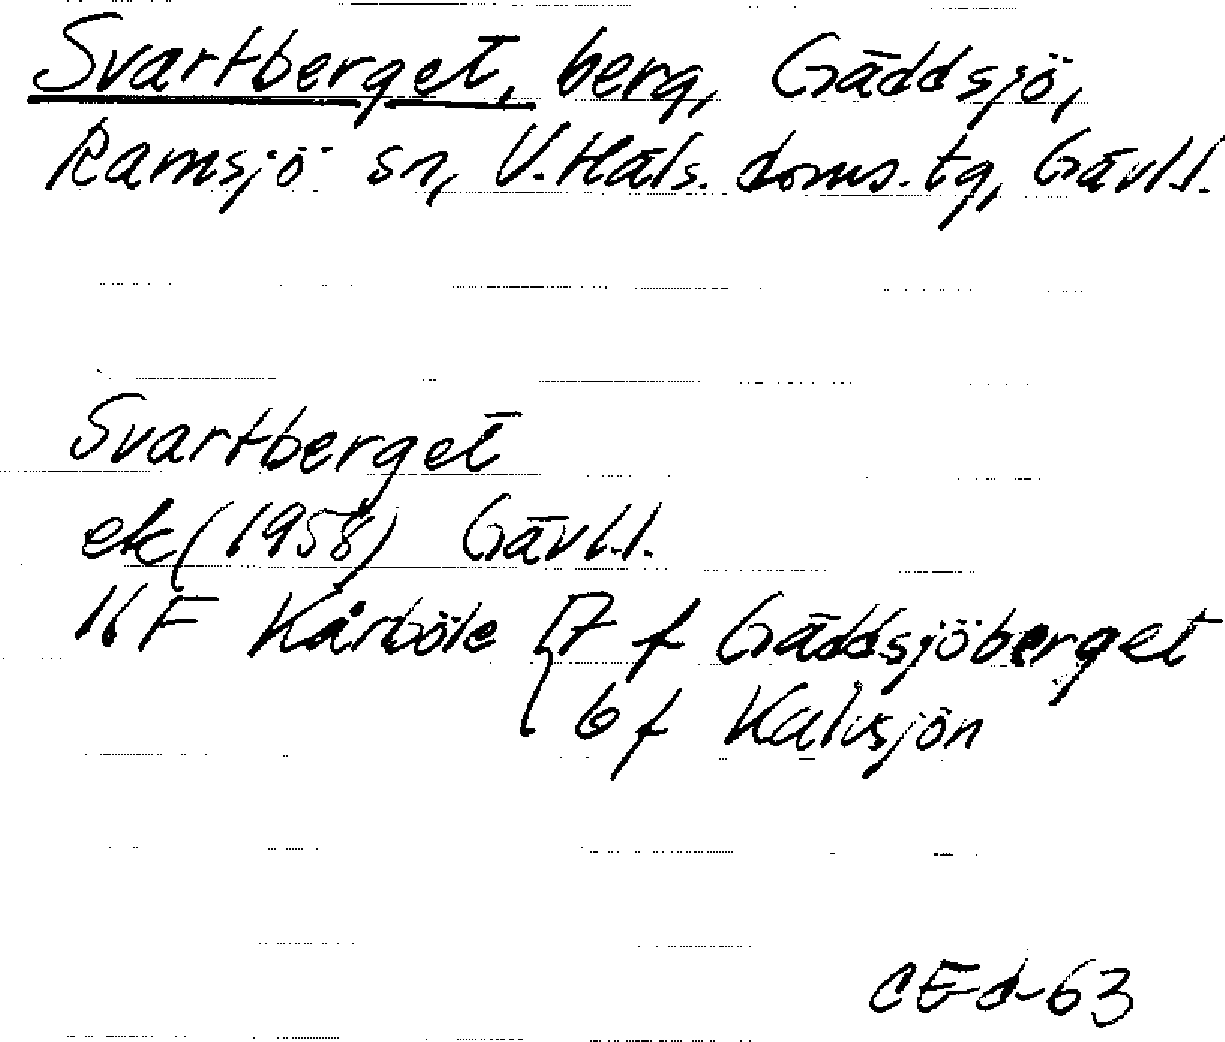 Svartberget, berg, Gäddsjö,
Ramsjö sn, V. Häls. doms. tg, Gävl.l.
Svartberget
ek (1958) Gävl.l.
16 F Kårböle { 7 f Gäddsjöberget
6 f Kalvsjön
CEd-63